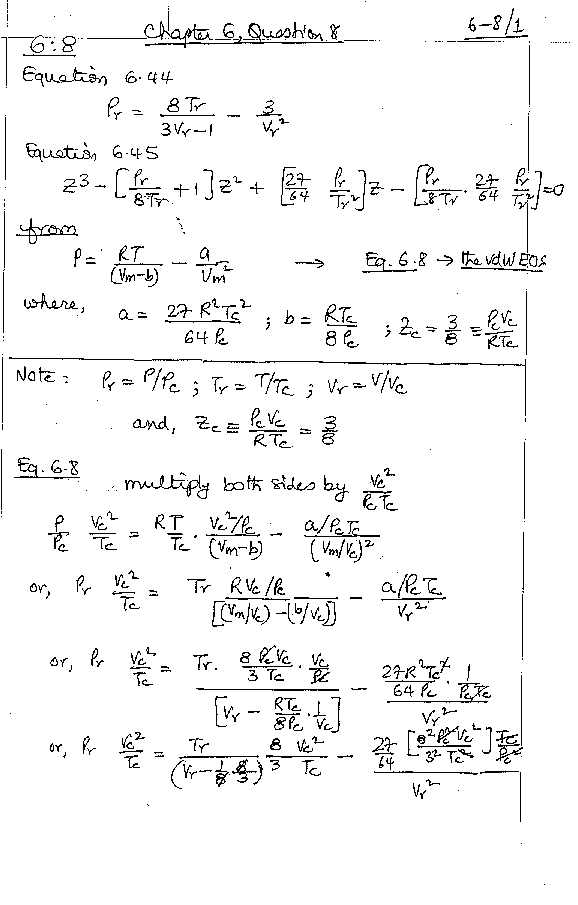 Chapter 6, Question 8
6-8/1
6:8
Equation 6.44
Pr = 8Tr/(3Vr-1) - 3/Vr²
Equation 6.45
Z³ - [Pr/8Tr + 1]Z² + [27/64 Pr/Tr²]Z - [Pr/8Tr · 27/64 Pr/Tr²] = 0
from
P = RT/(Vm-b) - a/Vm² → Eq. 6.8 → the vdW EOS
where, a = 27R²Tc²/64Pc ; b = RTc/8Pc ; Zc = 3/8 = PcVc/RTc
Note: Pr = P/Pc ; Tr = T/Tc ; Vr = V/Vc
and, Zc ≡ PcVc/RTc = 3/8
Eq. 6.8
multiply both sides by Vc²/PcTc
P/Pc Vc²/Tc = RT/Tc · Vc²/Pc/(Vm-b) - a/PcTc/(Vm/Vc)²
or, Pr Vc²/Tc = Tr RVc/Pc/[(Vm/Vc)-(b/Vc)] - a/PcTc/Vr²
or, Pr Vc²/Tc = Tr · 8PcVc/3Tc · Vc/Pc/[Vr - RTc/8Pc · 1/Vc] - 27R²Tc²/64Pc · 1/PcTc/Vr²
or, Pr Vc²/Tc = Tr/(Vr - 1/8 · 8/3) 8/3 Vc²/Tc - 27/64 [8²Pc²Vc²/3²Tc²] Tc/Pc²/Vr²